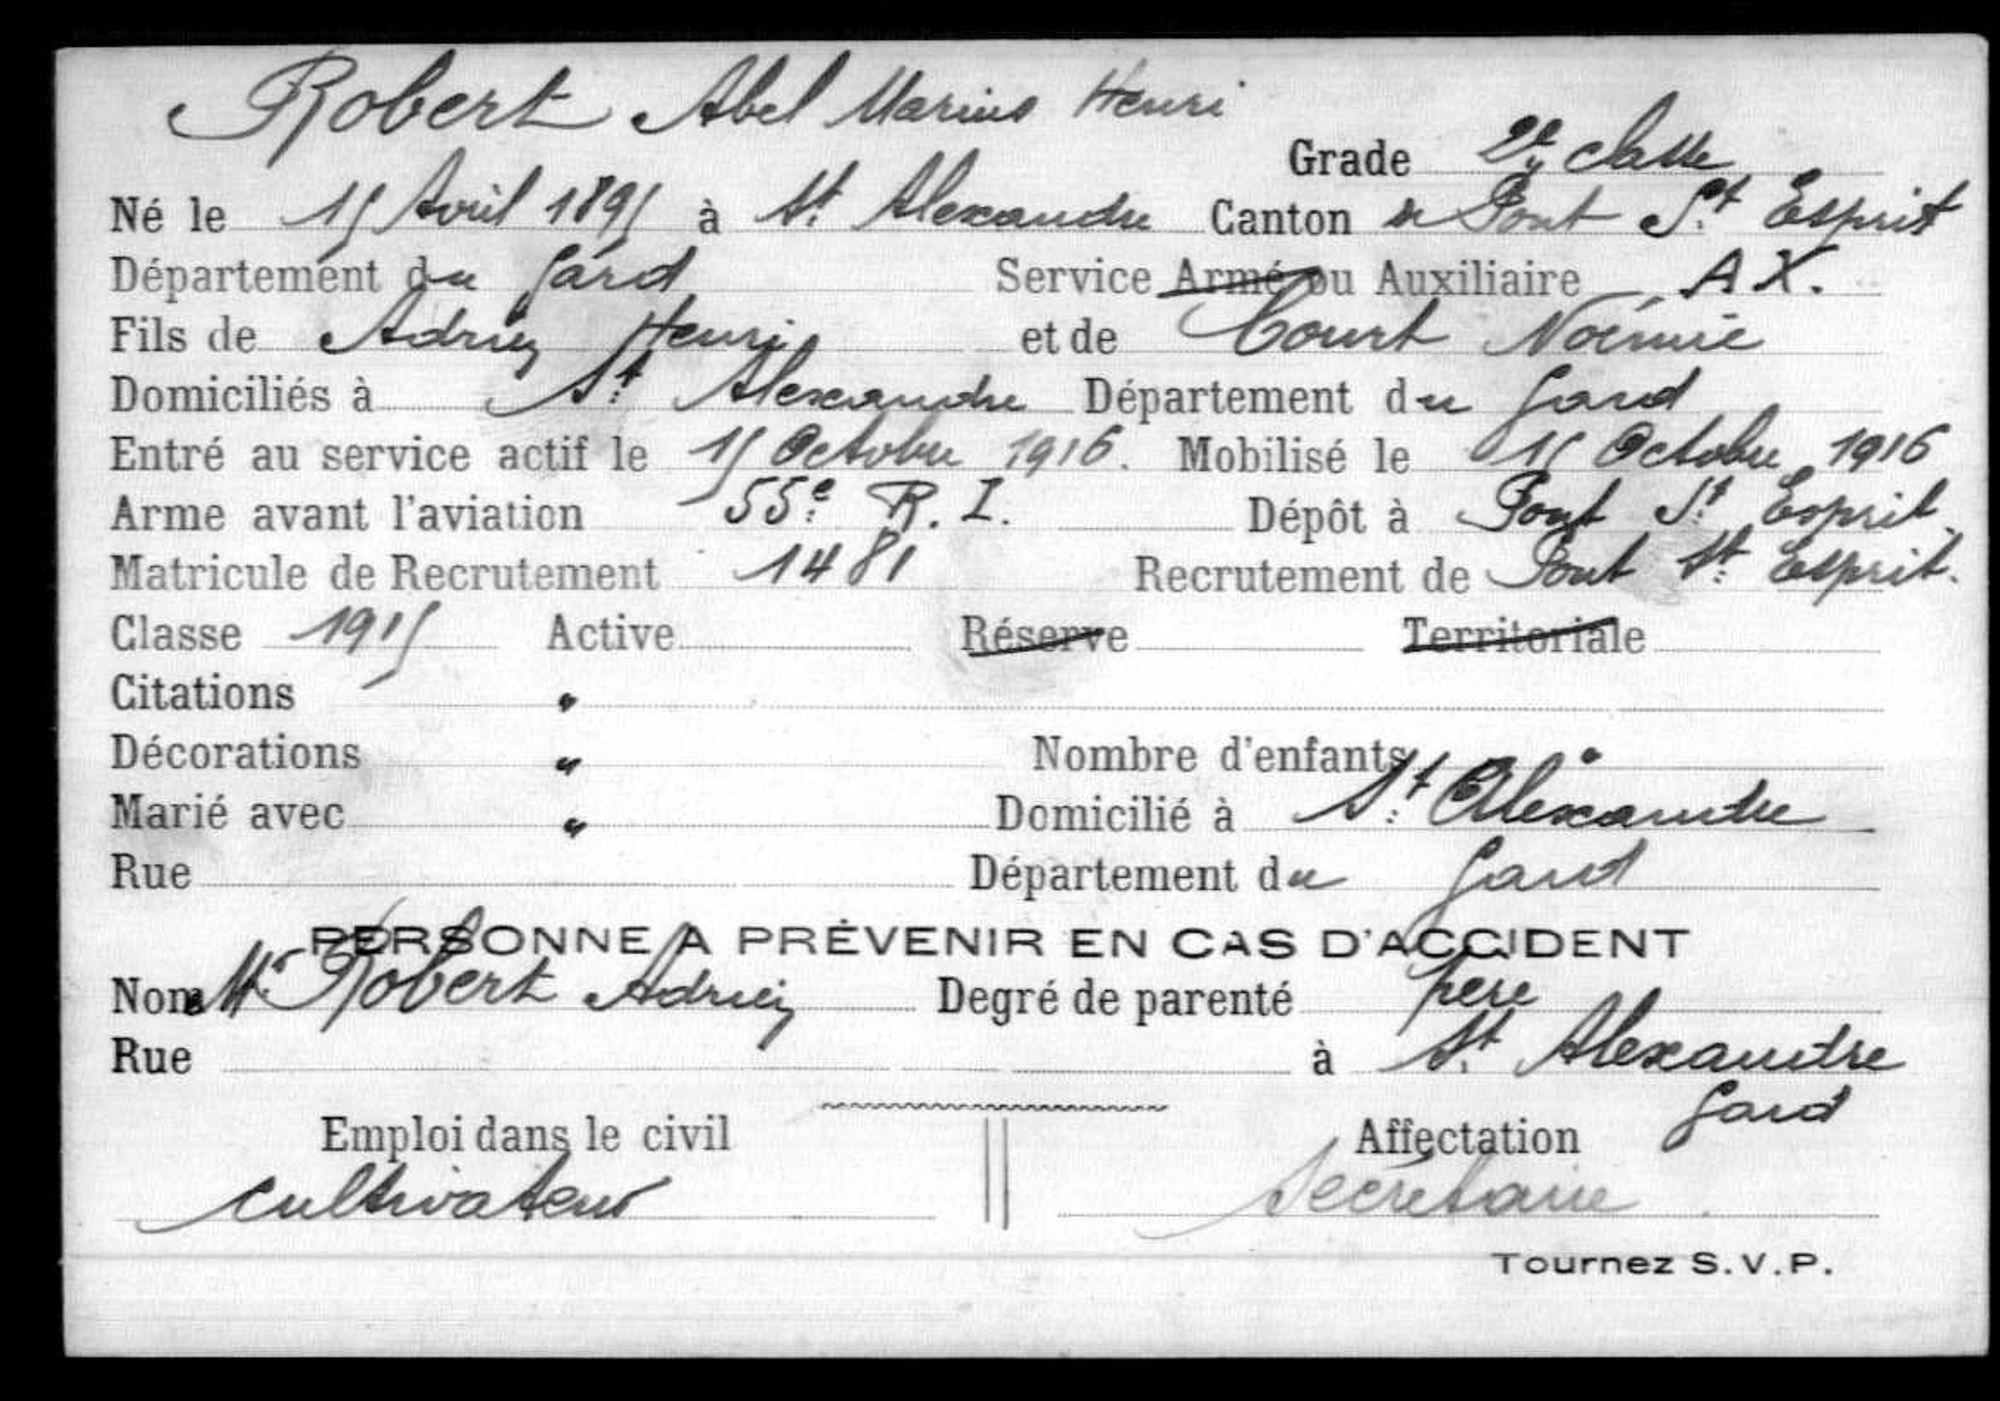 Robert Abel Marius Henri
Grade 2e classe
Né le 15 Avril 1895 à St. Alexandre Canton de Pont St Esprit
Département du Gard Service Armé ou Auxiliaire AX.
Fils de Adrien Henri et de Court Noémie
Domiciliés à St Alexandre Département du Gard
Entré au service actif le 15 Octobre 1916. Mobilisé le 15 Octobre 1916
Arme avant l'aviation 55e R. I. Dépôt à Pont St Esprit.
Matricule de Recrutement 1481 Recrutement de Pont St Esprit.
Classe 1915 Active Réserve Territoriale
Citations "
Décorations " Nombre d'enfants "
Marié avec " Domicilié à St Alexandre
Rue Département du Gard
PERSONNE A PRÉVENIR EN CAS D'ACCIDENT
Nom Mr Robert Adrien Degré de parenté père
Rue à St. Alexandre
Gard
Emploi dans le civil Affectation
cultivateur Secrétaire
Tournez S.V.P.